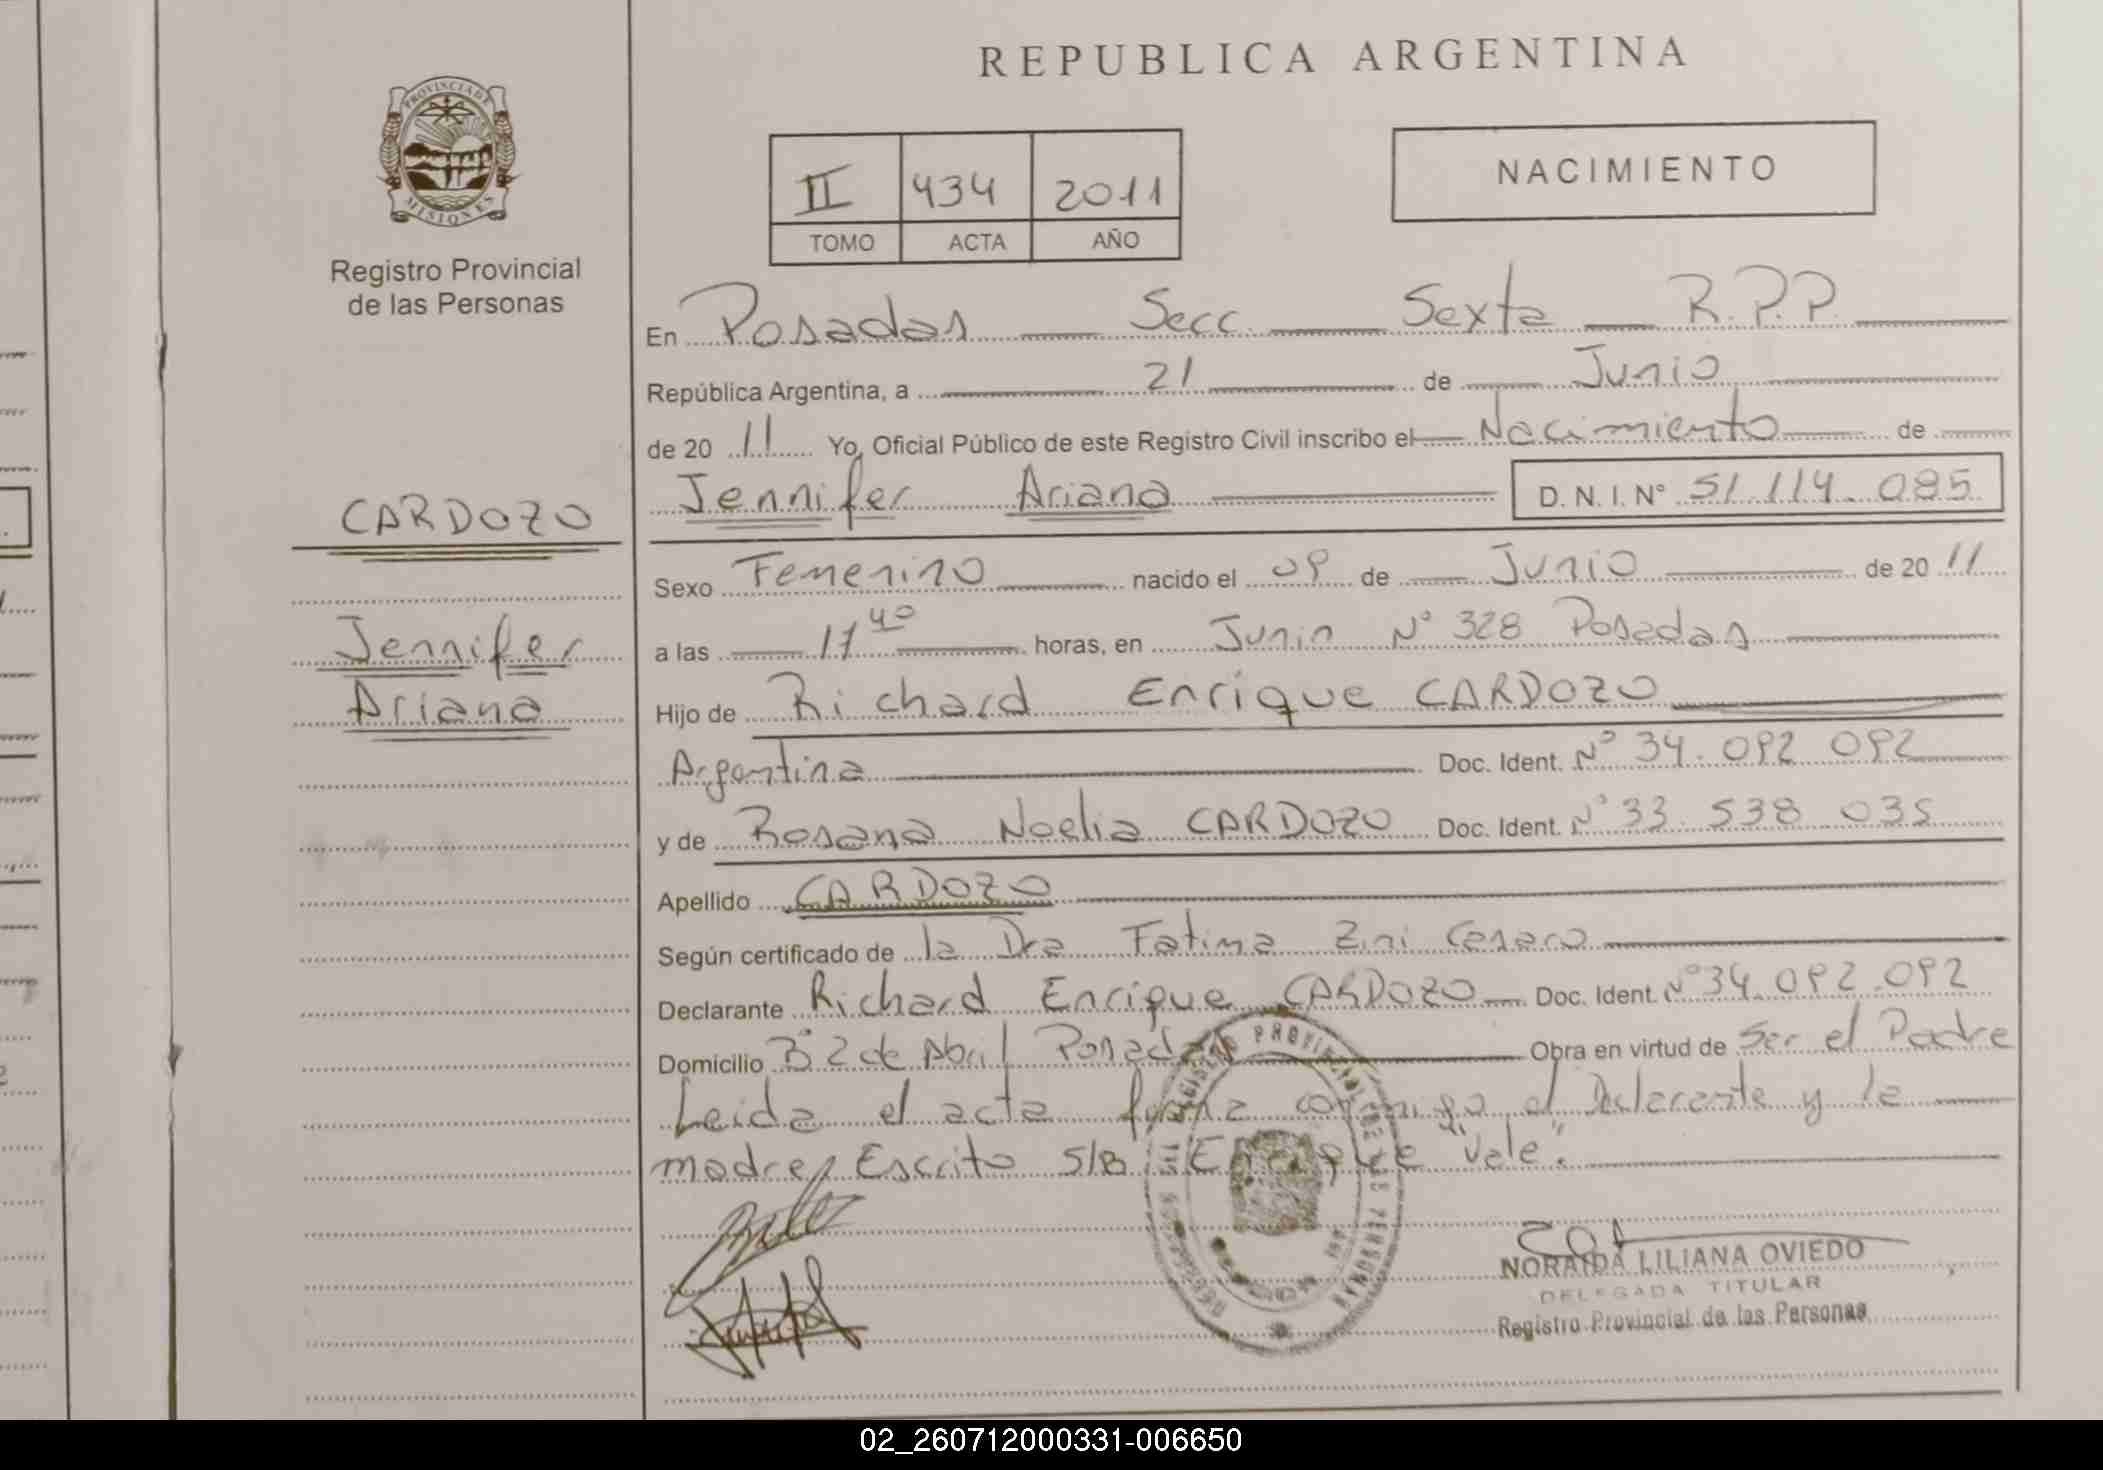 REPUBLICA ARGENTINA
PROVINCIA DE
MISIONES
Registro Provincial
de las Personas
II 434 2011
TOMO ACTA AÑO
NACIMIENTO
CARDOZO
Jennifer
Ariana
En Posadas Secc. Sexta R.P.P.
República Argentina, a 21 de Junio
de 20 11 Yo, Oficial Público de este Registro Civil inscribo el Nacimiento de
Jennifer Ariana D. N. I. N° 51.114.085
Sexo Femenino nacido el 09 de Junio de 20 11
a las 11 40 horas, en Junin N° 328 Posadas
Hijo de Richard Enrique CARDOZO
Argentina Doc. Ident. N° 34.092 092
y de Rosana Noelia CARDOZO Doc. Ident. N° 33.538 035
Apellido CARDOZO
Según certificado de la Dra Fatima Zini
Declarante Richard Enrique CARDOZO Doc. Ident. N° 34.092.092
Domicilio B° 2 de Abril Posadas Obra en virtud de ser el Padre
Leida el acta firma conmigo el Declarante y la
madre, Escrito S/B: "Enrique" "Vale".
NORAIDA LILIANA OVIEDO
DELEGADA TITULAR
Registro Provincial de las Personas
02_260712000331-006650